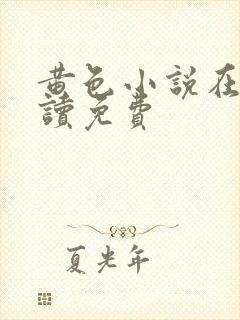 黄色小説在
讀免費
夏光年